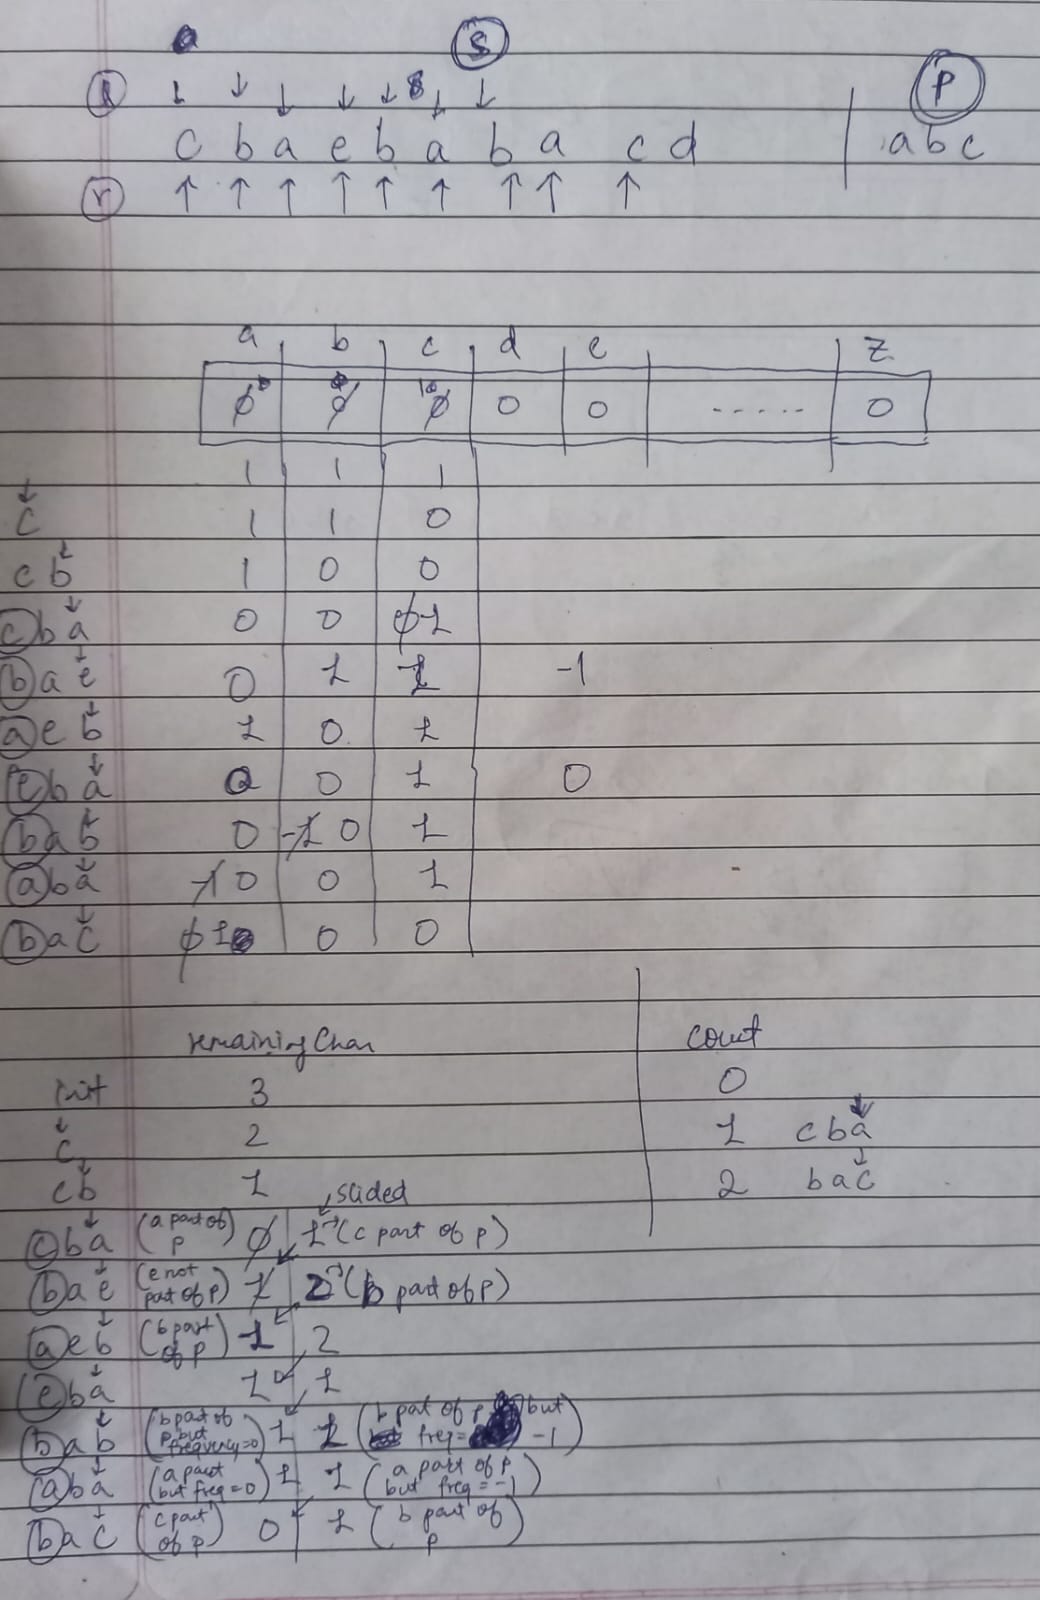 S
l
P
c b a e b a b a c d
a b c
r
a b c d e z
0 0 0 0 0 ...... 0
1 1 1
c 1 1 0
c b 1 0 0
c b a 0 0 0 1
b a e 0 1 1 -1
a e b 1 0 1
e b a 0 0 1 0
b a b 0 -1 0 1
a b a -1 0 0 1
b a c 0 1 0 0
remaining Char count
init 3 0
c 2 1 c b a
c b 1 2 b a c
slided
c b a (a part of p) 0 1 → (c part of p)
b a e (e not part of p) 1 2 → (b part of p)
a e b (b part of p) 1 2
e b a 1 0 1
b a b (b part of p but frequency=0) 1 1 (b part of p but freq = -1)
a b a (a part but freq=0) 1 1 (a part of p but freq = -1)
b a c (c part of p) 0 1 (b part of p)